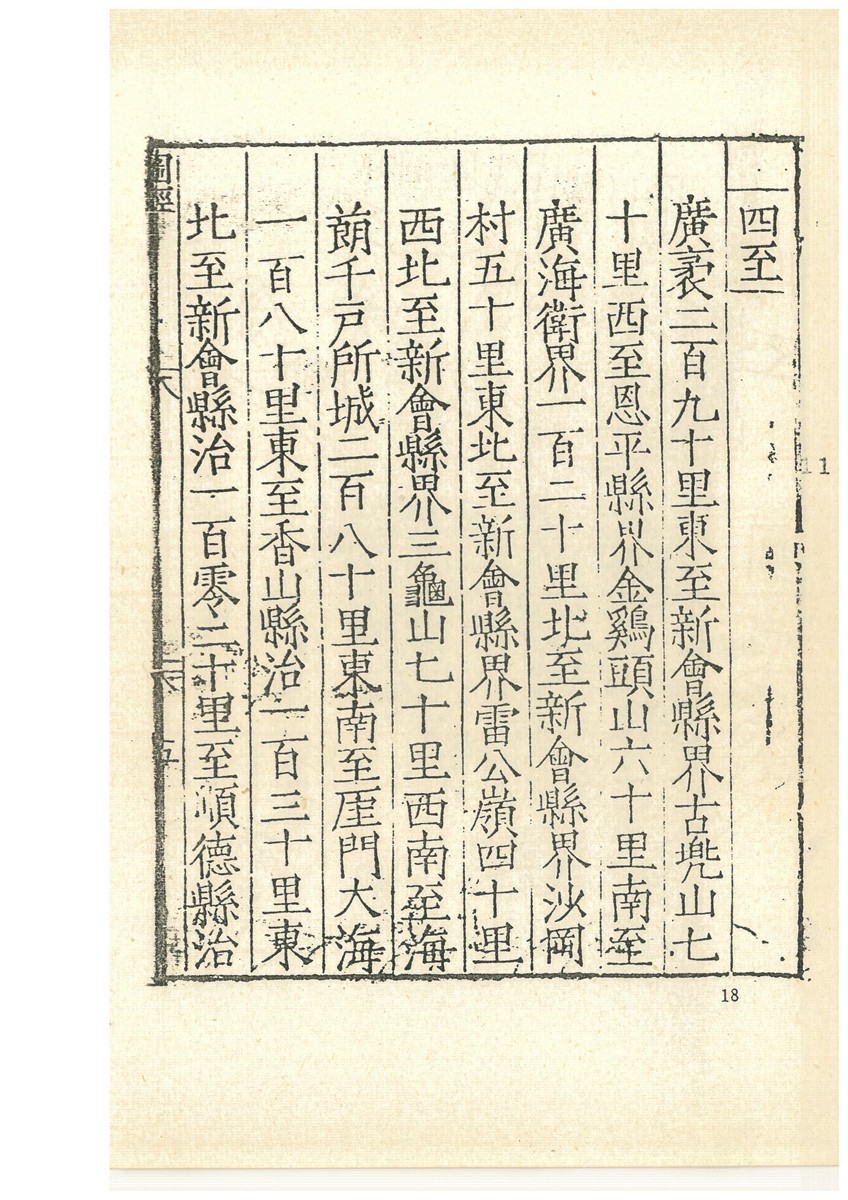 四至
廣袤二百九十里東至新會縣界古兠山七
十里西至恩平縣界金鷄頭山六十里南至
廣海衛界一百二十里北至新會縣界沙岡
村五十里東北至新會縣界雷公嶺四十里
西北至新會縣界三龜山七十里西南至海
萠千戸所城二百八十里東南至厓門大海
一百八十里東至香山縣治一百三十里東
北至新會縣治一百零二十里至順德縣治
圖經
18
11